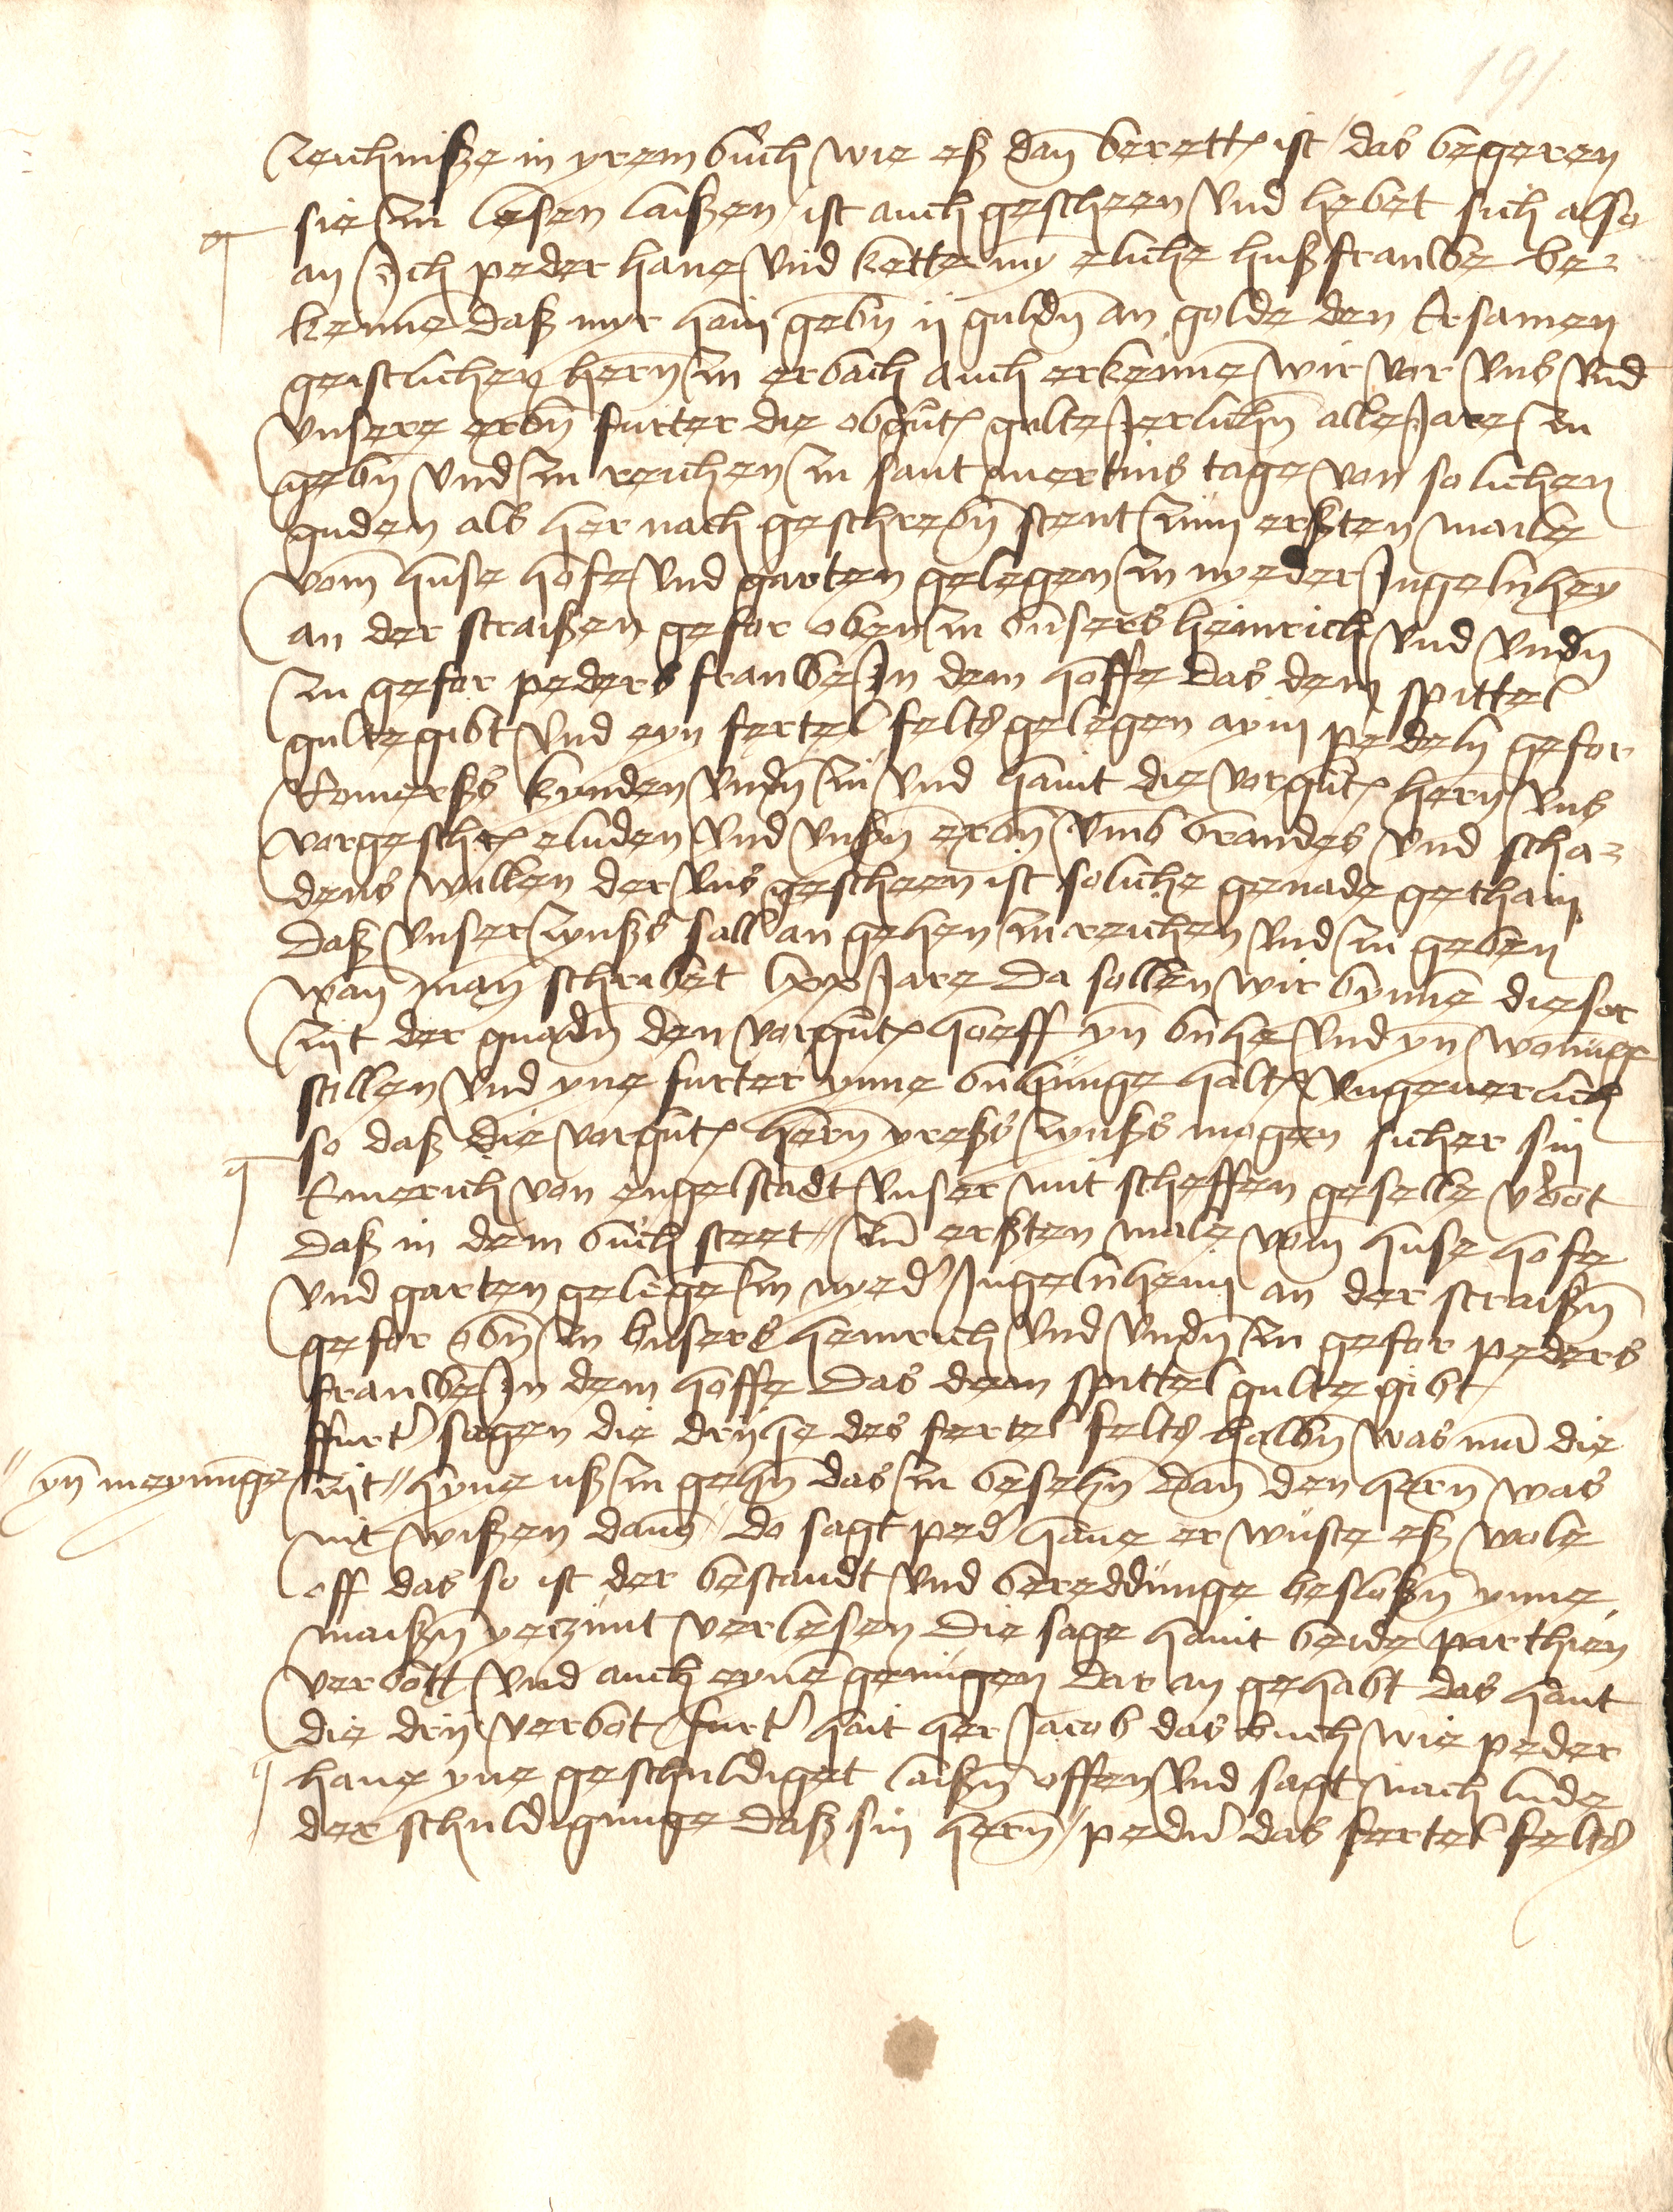 191
zeichniße in yrem buch wie eß dan̄ berett ist / das begeren
sie zu lesen laißen / ist auch gescheen vnd hebet sich also
an Jch peder hane vnd kette my eliche hußfrauwe be-
kenne daß myr hain gebn̄ ij guldn̄ an golde den Ersamen
geistlichen hern̄ zu erbach auch erkenne wir vor vns vnd
vnsere erbn̄ furter die obgut gulte Jerlichn̄ alle Jare zu
gebn̄ vnd zu reichen zu sant mertins tage von solichen
guden als her nach geschrebn̄ stent zum erßten maile
vom huse hofe vnd garten gelegen zu nyeder Jngelnheȳ
an der straißen gefor oben zu bußers heinrich vnd vndn̄
zu gefor peders frauwe Jn dem hoffe das dem spittel
gulte gibt vnd eyn fertel felts gelegen aym pedeln̄ gefor
Romerßs kynden vndn̄ zu vnd haint die vorgut hern̄ vns
vorgeschr eluden vnd vnßn̄ erbn̄ vmb brandes vnd scha-
dens willen der vns gescheen ist soliche genade gethain
daß vnser zynßs sall an gehen zu reichen vnd zu geben
wan̄ man̄ schribet lxx Jare da sollen wir bynne dieser
zijt der gnadn̄ den vorgut hoeff yn̄ buhe vnd yn̄ wonunge
stillen vnd yne furter ynne buhunge halt vngeuerlich
so daß die vorgut hern̄ yreßs zynßs mogen sicher sin
Emerich von engelstadt vnser mit scheffen geselle v'bot
daß in dem buch steet // zū erßten male vom huse hofe
vnd garten gelegē zu nyed' Jngelnheim an der straißn̄
gefor obn̄ zu bußers heinrich vnd vndn̄ zu gefor peders
frauwe Jn dem hoffe das dem spittel gulte gibt
ffurt' sagen die drijhe des fertel felts halbn̄ was mā die
// yn̄ meynunge
zijt // hyne uß zu gehn̄ das zu besehn̄ dan̄ den hern̄ was
nit wißen dauō / do sagt ped' hane er wuste eß wole
off das so ist der bestandt vnd bereddunge beslossn̄ ynne
maißn̄ yerzunt verlesen die sage haint beide parthien
verbott vnd auch eyne genugen dar an gehabt das haint
die drij verbot / furt' hait her Jacob das buch wie peder
hane yne geschuldiget laißn̄ offen vnd sagt nach lude
der schuldigunge daß sin hern̄ / pedn̄ das fertel felts